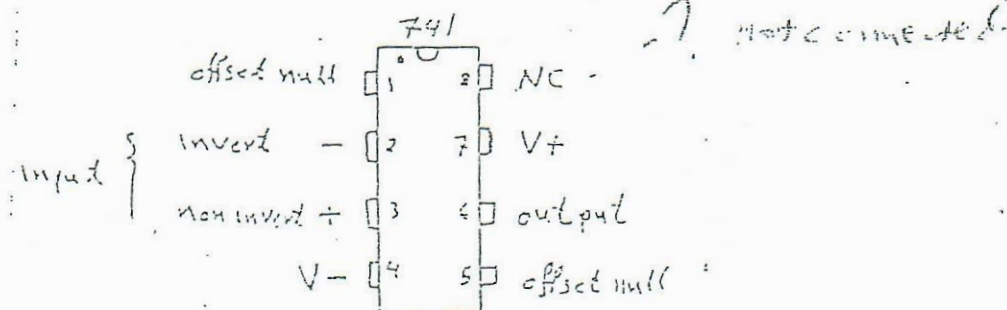 741
? not connected
offset null 1 8 NC -
input { invert - 2 7 V+
non invert + 3 6 output
V- 4 5 offset null